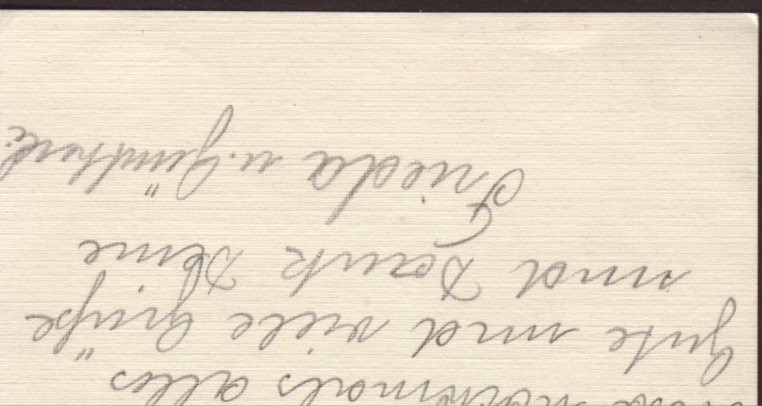 nochmals alles
Gute und viele Grüße
und Dank Deine
Frieda u. Günther